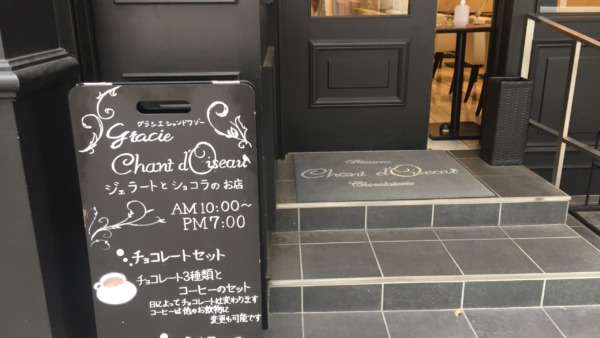 グラシエ シャンドワゾー
gracie
Chant d'Oiseau
ジェラートとショコラのお店
AM 10:00～
PM 7:00
チョコレートセット
チョコレート3種類と
コーヒーのセット
日によってチョコレートは変わります
コーヒーは他のお飲物に
変更も可能です
Chant d'Oiseau
Chocolaterie